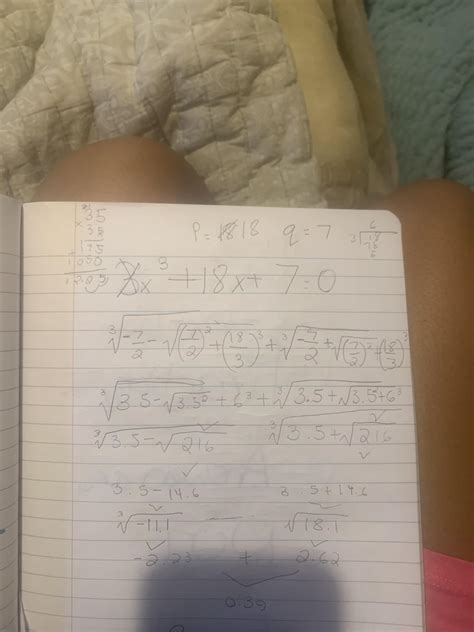 35
× 35
175
1050
1225
P = 18 18 q = 7
6
3 √18
18
0
3x³ + 18x + 7 = 0
∛(-7/2 - √((7/2)² + (18/3)³)) + ∛(-7/2 + √((7/2)² + (18/3)³))
∛(3.5 - √(3.5² + 6³)) + ∛(3.5 + √(3.5 + 6³))
∛(3.5 - √216) ∛(3.5 + √216)
3.5 - 14.6 3.5 + 14.6
∛-11.1 √18.1
-2.23 + 2.62
0.39